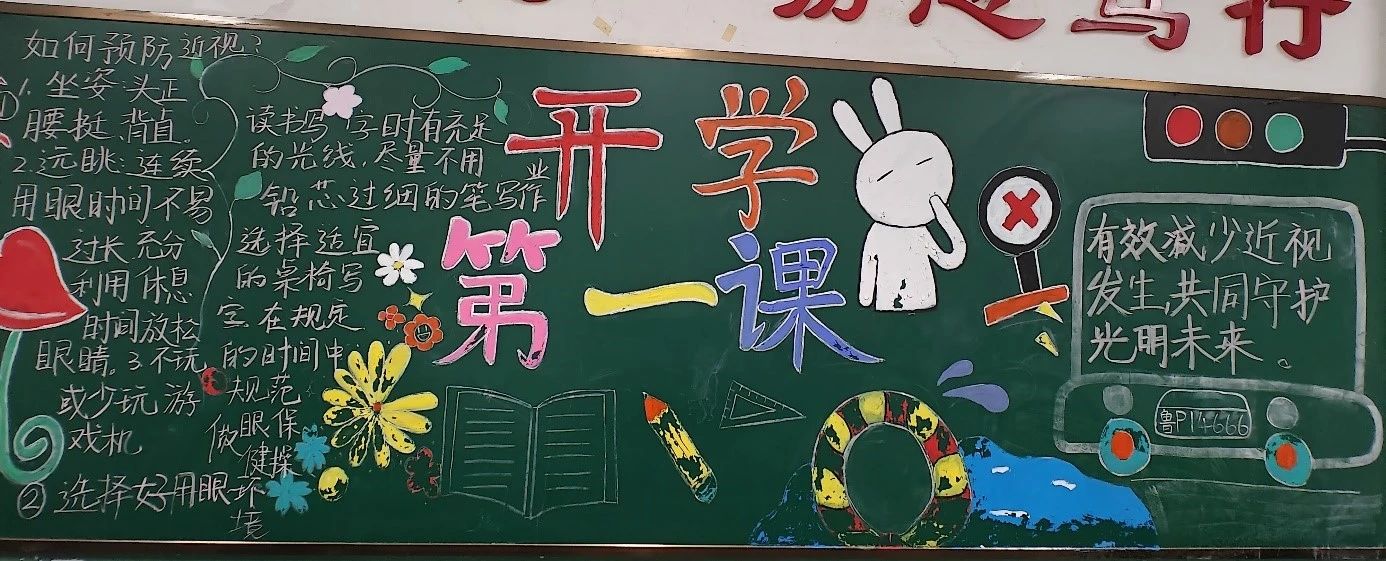 行
如何预防近视?
①1. 坐姿:头正
腰挺 背直。
2.远眺:连续
用眼时间不易
过长 充分
利用休息
时间放松
眼睛。3不玩
或少玩游
戏机
②选择好用眼环
境
读书写字时有充足
的光线,尽量不用
铅芯过细的笔写作业
选择适宜
的桌椅写
字.在规定
的时间中
规范
做眼保
健操
开学
第一课
有效减少近视
发生,共同守护
光明未来。
鲁P14666